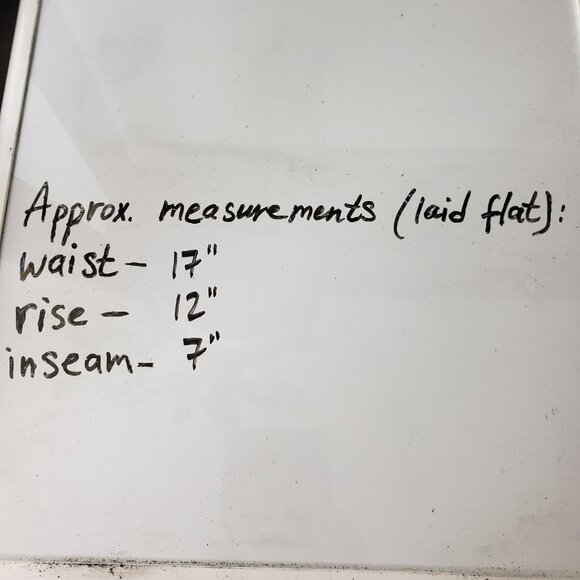 Approx. measurements (laid flat):
waist - 17"
rise - 12"
inseam - 7"